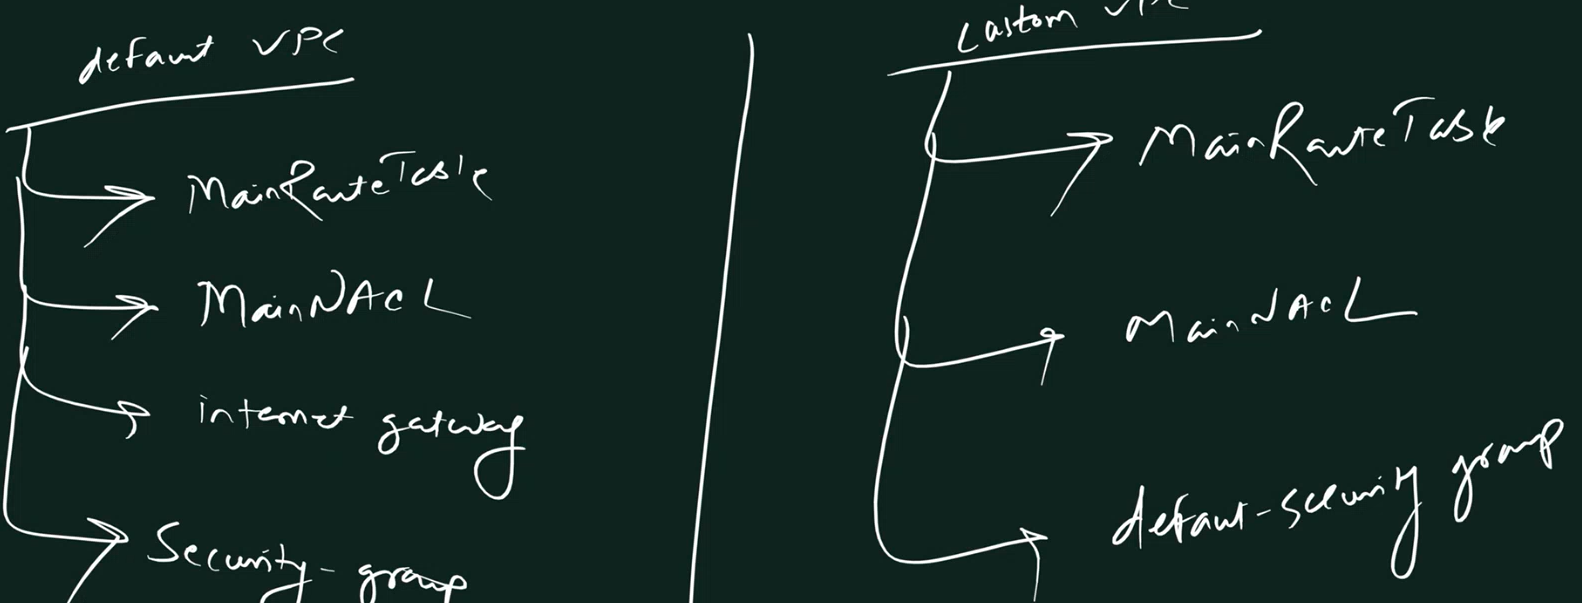 default VPC
MainRouteTable
MainNACL
internet gateway
Security-group
Custom VPC
MainRouteTable
MainNACL
default-security group